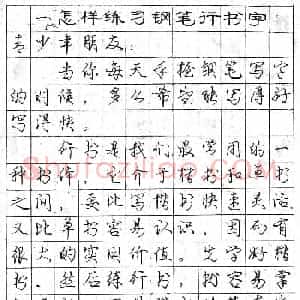 一、怎样练习钢笔行书字
青少年朋友：
当你每天手握钢笔写字
的时候，多么希望能写得好
写得快。
行书是我们最常用的一
种书体，它介于楷书和草书
之间，要比写楷书快来灵活
又比草书容易认识，因而有
很大的实用价值。先学好楷
书，然后练行书，就容易掌